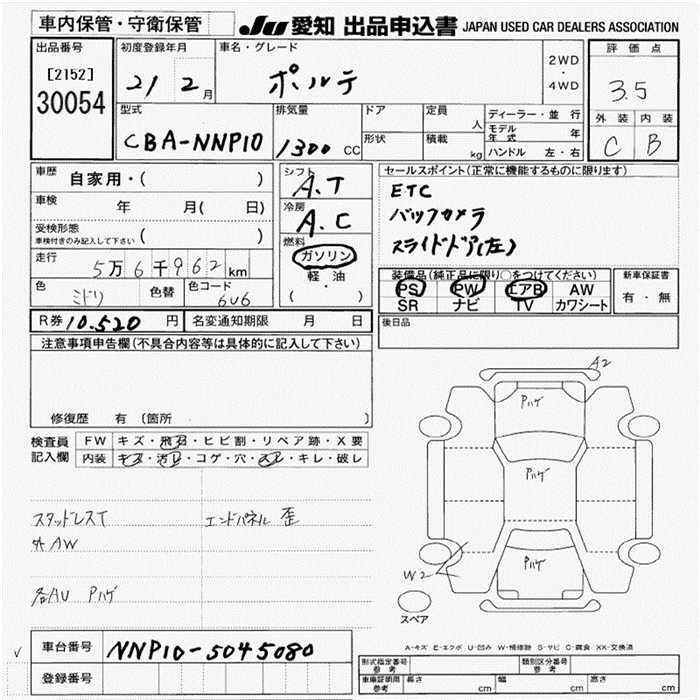 車内保管・守衛保管
JU 愛知 出品申込書 JAPAN USED CAR DEALERS ASSOCIATION
出品番号
[2152]
30054
初度登録年月
21 2月
車名・グレード
ポルテ
2WD
・
4WD
評価点
3.5
外装 内装
C B
型式
CBA-NNP10
排気量
1300 CC
ドア
形状
定員 人
積載 kg
ディーラー・並行
モデル年式 年
ハンドル 左・右
車歴 自家用・( )
車検 年 月( 日)
受検形態
車検付きのみ記入して下さい ( )
走行 5万6千962km
色 ミドリ 色替 色コード 6V6
シフト
A.T
冷房
A.C
燃料
ガソリン
軽・油
( ・ )
セールスポイント(正常に機能するものに限ります)
ETC
バックカメラ
スライドドア(左)
装備品(純正品に限り○をつけてください)
PS PW エアB AW
SR ナビ TV カワシート
新車保証書
有・無
R券 10.520 円 名変通知期限 月 日
後日品
注意事項申告欄(不具合内容等は具体的に記入して下さい)
修復歴 有 (箇所
検査員記入欄
FW キズ・飛石・ヒビ割・リペア跡・X要
内装 キズ・汚レ・コゲ・穴・スレ・キレ・破レ
スタッドレスT
外AW
エンドパネル 歪
各AU Pハゲ
A2
Pハゲ
Pハゲ
Pハゲ
W2
スペア
A-キズ E-エクボ U-凹み W-補修跡 S-サビ C-腐食 XX-交換済
車台番号 NNP10-5045080
登録番号
型式指定番号 参考 類別区分番号 参考
車庫証明用 参考 長さ cm 幅 cm 高さ cm